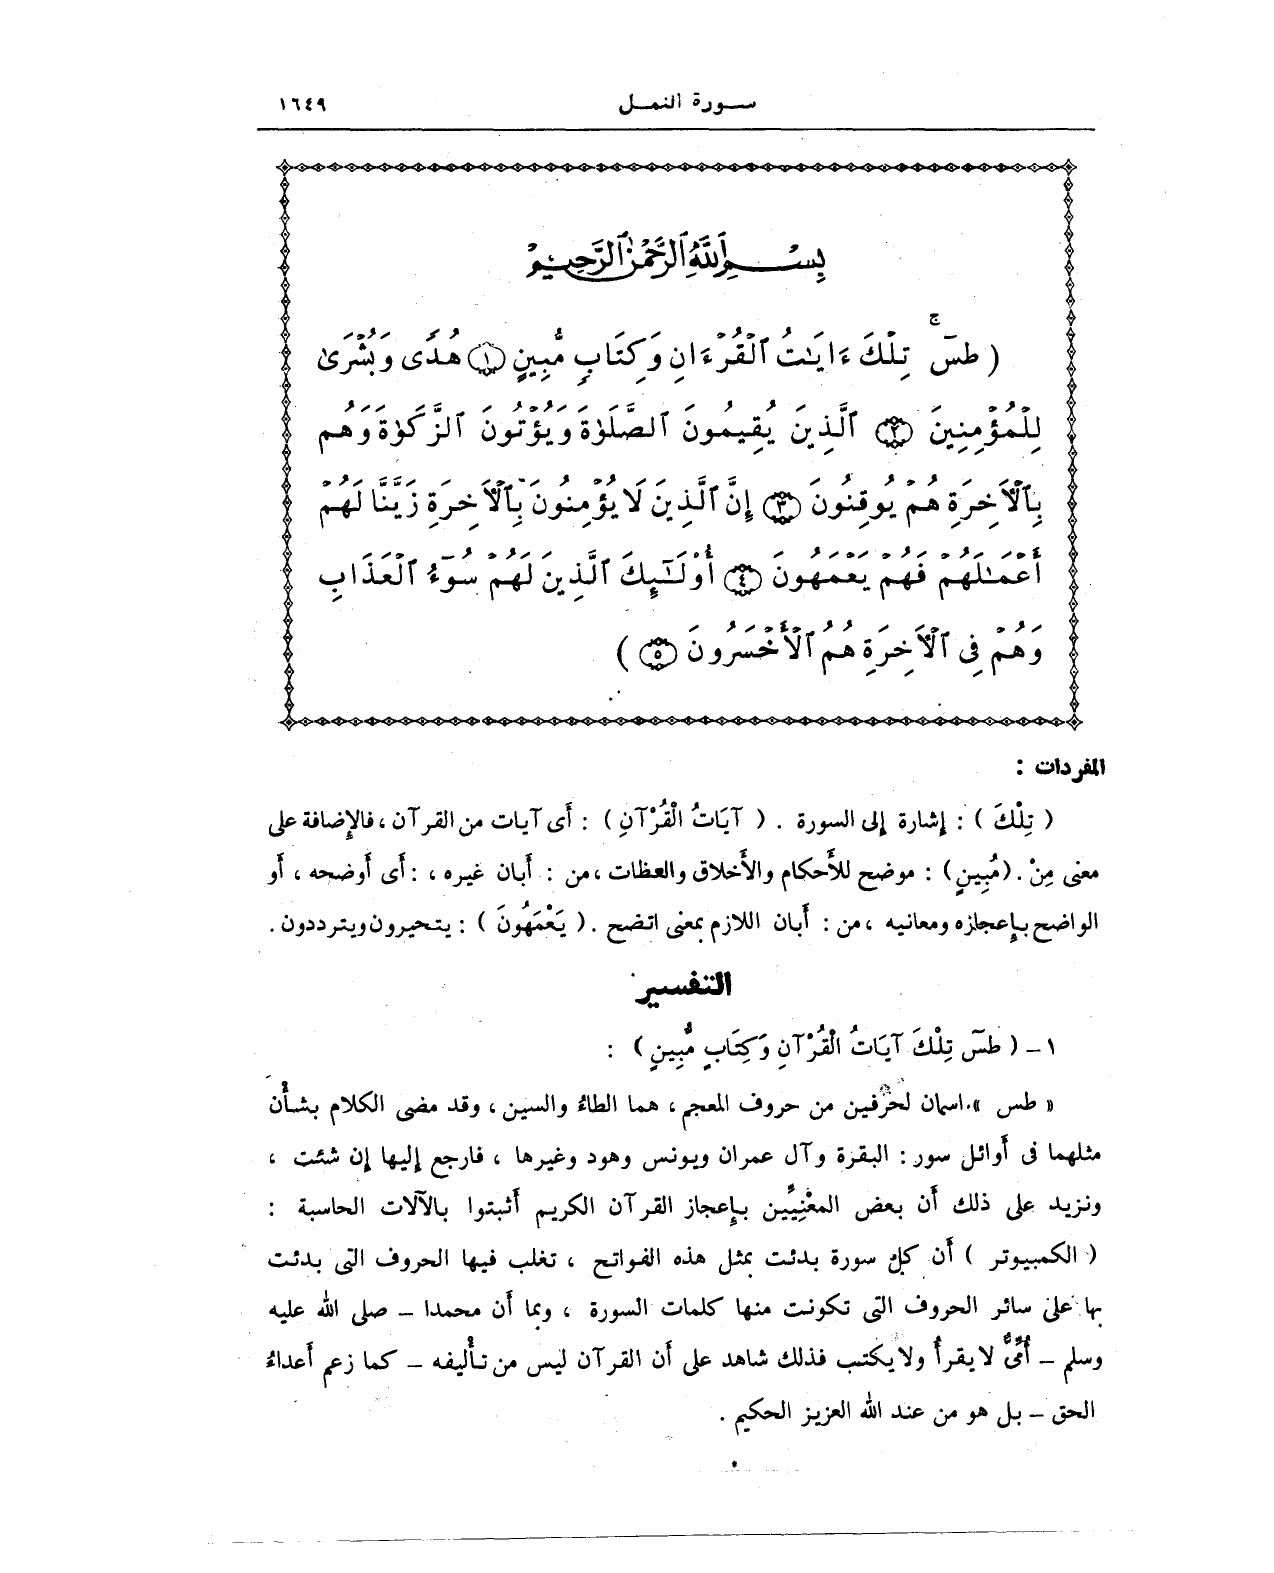 سورة النمل ١٦٤٩
بِسْمِ ٱللَّهِ ٱلرَّحْمَٰنِ ٱلرَّحِيمِ
( طسٓ ۚ تِلْكَ ءَايَٰتُ ٱلْقُرْءَانِ وَكِتَابٍ مُّبِينٍ ١ هُدًى وَبُشْرَىٰ
لِلْمُؤْمِنِينَ ٢ ٱلَّذِينَ يُقِيمُونَ ٱلصَّلَوٰةَ وَيُؤْتُونَ ٱلزَّكَوٰةَ وَهُم
بِٱلْأَخِرَةِ هُمْ يُوقِنُونَ ٣ إِنَّ ٱلَّذِينَ لَا يُؤْمِنُونَ بِٱلْأَخِرَةِ زَيَّنَّا لَهُمْ
أَعْمَٰلَهُمْ فَهُمْ يَعْمَهُونَ ٤ أُوْلَٰٓئِكَ ٱلَّذِينَ لَهُمْ سُوٓءُ ٱلْعَذَابِ
وَهُمْ فِى ٱلْأَخِرَةِ هُمُ ٱلْأَخْسَرُونَ ٥ )
المفردات :
( تِلْكَ ) : إشارة إلى السورة . ( آيَاتُ الْقُرْآنِ ) : أى آيات من القرآن ، فالإضافة على
معنى مِنْ . (مُبِينٍ ) : موضح للأحكام والأخلاق والعظات ، من : أبان غيره ، : أى أوضحه ، أو
الواضح بإعجازه ومعانيه ، من : أبان اللازم بمعنى اتضح . ( يَعْمَهُونَ ) : يتحيرون ويترددون .
التفسير
١ – ( طسٓ تِلْكَ آيَاتُ الْقُرْآنِ وَكِتَابٍ مُّبِينٍ ) :
« طس » اسمان لحرفين من حروف المعجم ، هما الطاءُ والسين ، وقد مضى الكلام بشأن
مثلهما فى أوائل سور : البقرة وآل عمران ويونس وهود وغيرها ، فارجع إليها إن شئت ،
ونزيد على ذلك أن بعض المعْنِيِّين بإعجاز القرآن الكريم أثبتوا بالآلات الحاسبة :
( الكمبيوتر ) أن كل سورة بدئت بمثل هذه الفواتح ، تغلب فيها الحروف التى بدئت
بها على سائر الحروف التى تكونت منها كلمات السورة ، وبما أن محمدا – صلى الله عليه
وسلم – أُمِّىٌّ لا يقرأ ولا يكتب فذلك شاهد على أن القرآن ليس من تأليفه – كما زعم أعداءُ
الحق – بل هو من عند الله العزيز الحكيم .